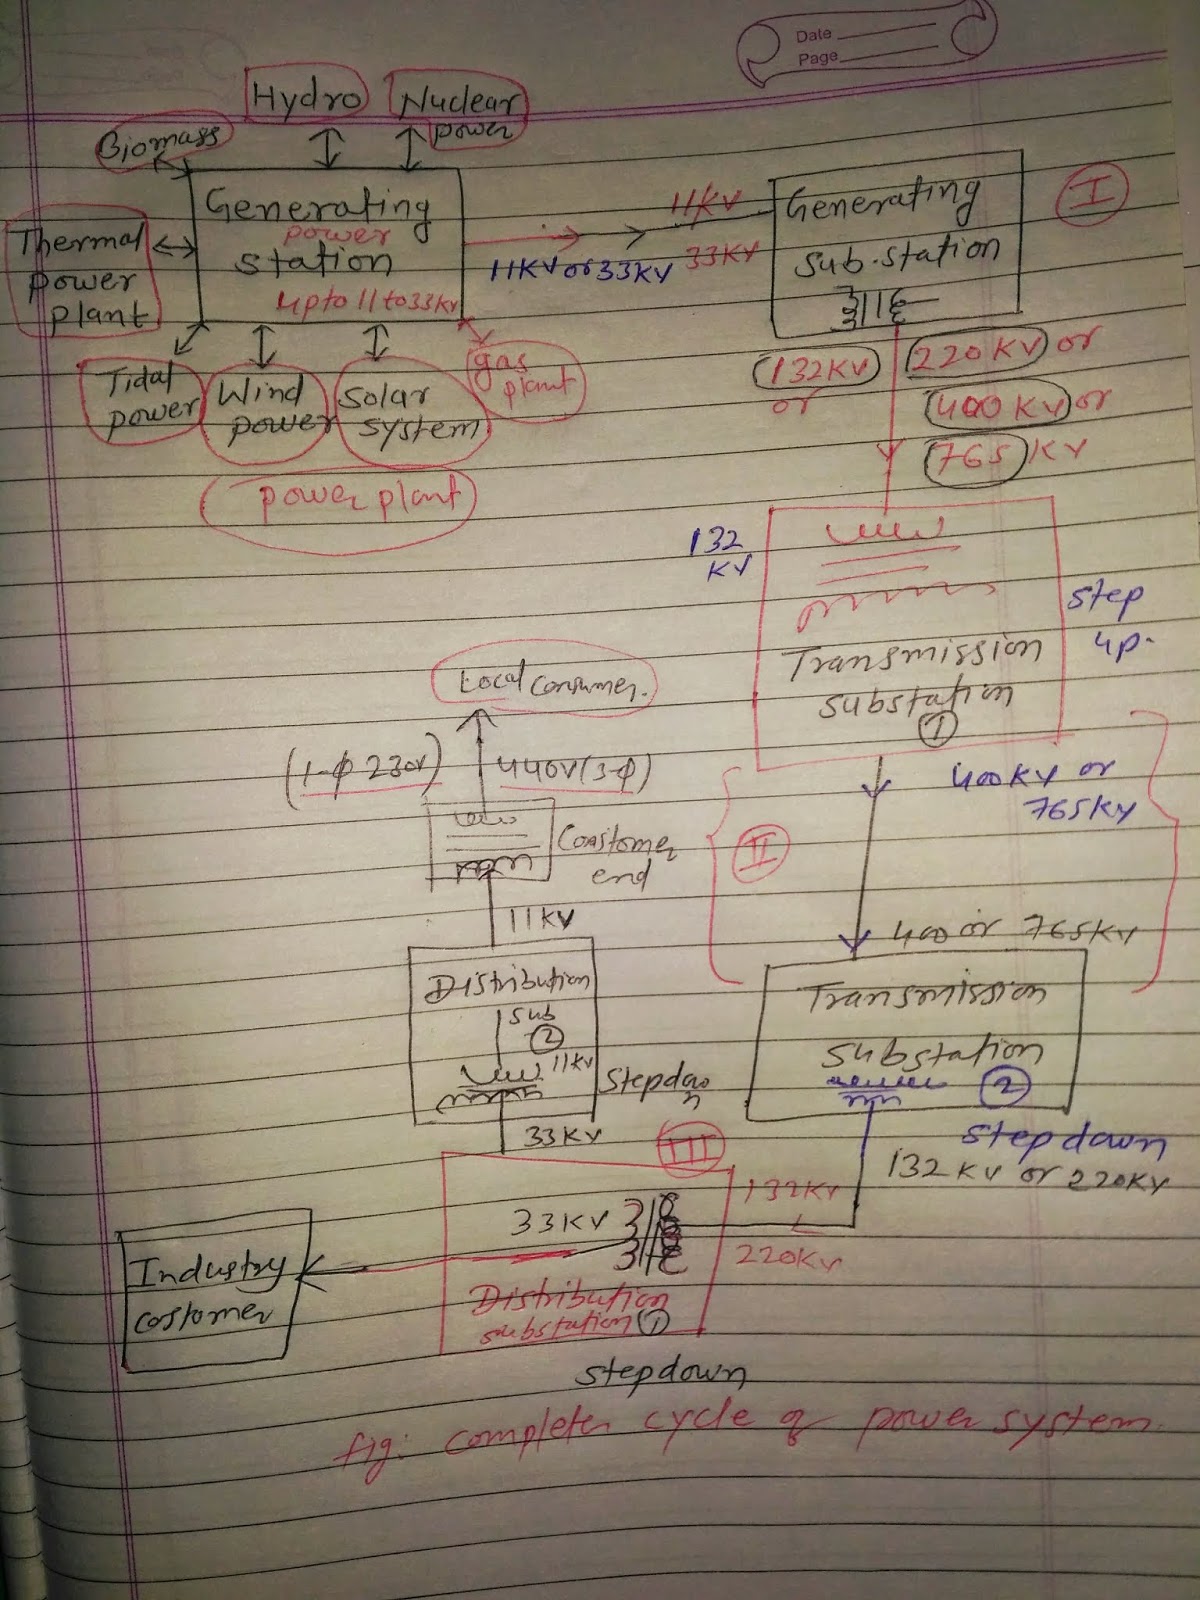 Date
Page
Hydro
Nuclear
power
Biomass
Generating
power
station
upto 11 to 33KV
Thermal
power
plant
Tidal
power
Wind
power
Solar
system
gas
plant
power plant
11KV
33KV
11KV or 33KV
Generating
Sub-station
I
132KV
or
220KV or
400KV or
765 KV
132
KV
Transmission
substation
1
step
up.
400KV or
765KV
II
400 or 765KV
Transmission
substation
2
stepdown
132KV or 220KV
Local consumer.
(1-φ 230V)
440V(3-φ)
Coastomer
end
11KV
Distribution
sub
2
11KV
Stepdow
n
33KV
III
132KV
220KV
33KV
Distribution
substation 1
stepdown
Industry
costomer
fig: completer cycle of power system.